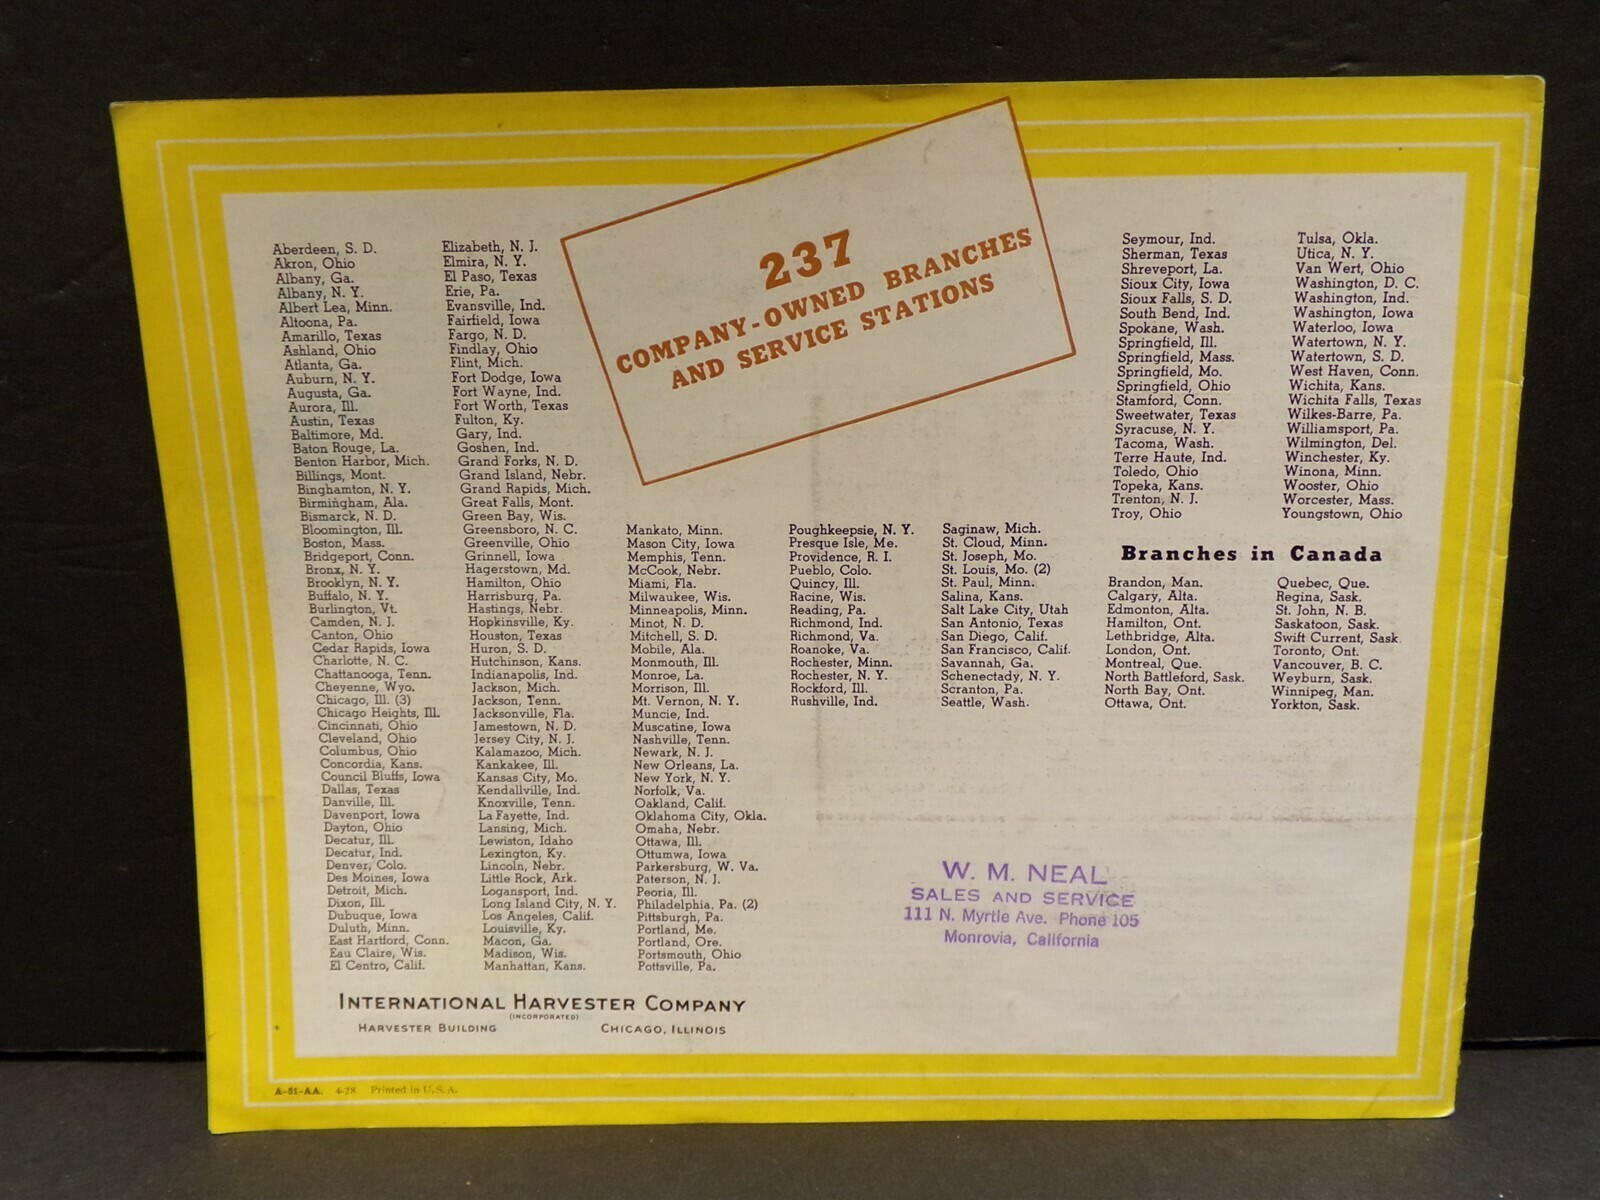 237
COMPANY-OWNED BRANCHES
AND SERVICE STATIONS
Aberdeen, S. D.
Akron, Ohio
Albany, Ga.
Albany, N. Y.
Albert Lea, Minn.
Altoona, Pa.
Amarillo, Texas
Ashland, Ohio
Atlanta, Ga.
Auburn, N. Y.
Augusta, Ga.
Aurora, Ill.
Austin, Texas
Baltimore, Md.
Baton Rouge, La.
Benton Harbor, Mich.
Billings, Mont.
Binghamton, N. Y.
Birmingham, Ala.
Bismarck, N. D.
Bloomington, Ill.
Boston, Mass.
Bridgeport, Conn.
Bronx, N. Y.
Brooklyn, N. Y.
Buffalo, N. Y.
Burlington, Vt.
Camden, N. J.
Canton, Ohio
Cedar Rapids, Iowa
Charlotte, N. C.
Chattanooga, Tenn.
Cheyenne, Wyo.
Chicago, Ill. (3)
Chicago Heights, Ill.
Cincinnati, Ohio
Cleveland, Ohio
Columbus, Ohio
Concordia, Kans.
Council Bluffs, Iowa
Dallas, Texas
Danville, Ill.
Davenport, Iowa
Dayton, Ohio
Decatur, Ill.
Decatur, Ind.
Denver, Colo.
Des Moines, Iowa
Detroit, Mich.
Dixon, Ill.
Dubuque, Iowa
Duluth, Minn.
East Hartford, Conn.
Eau Claire, Wis.
El Centro, Calif.
Elizabeth, N. J.
Elmira, N. Y.
El Paso, Texas
Erie, Pa.
Evansville, Ind.
Fairfield, Iowa
Fargo, N. D.
Findlay, Ohio
Flint, Mich.
Fort Dodge, Iowa
Fort Wayne, Ind.
Fort Worth, Texas
Fulton, Ky.
Gary, Ind.
Goshen, Ind.
Grand Forks, N. D.
Grand Island, Nebr.
Grand Rapids, Mich.
Great Falls, Mont.
Green Bay, Wis.
Greensboro, N. C.
Greenville, Ohio
Grinnell, Iowa
Hagerstown, Md.
Hamilton, Ohio
Harrisburg, Pa.
Hastings, Nebr.
Hopkinsville, Ky.
Houston, Texas
Huron, S. D.
Hutchinson, Kans.
Indianapolis, Ind.
Jackson, Mich.
Jackson, Tenn.
Jacksonville, Fla.
Jamestown, N. D.
Jersey City, N. J.
Kalamazoo, Mich.
Kankakee, Ill.
Kansas City, Mo.
Kendallville, Ind.
Knoxville, Tenn.
La Fayette, Ind.
Lansing, Mich.
Lewiston, Idaho
Lexington, Ky.
Lincoln, Nebr.
Little Rock, Ark.
Logansport, Ind.
Long Island City, N. Y.
Los Angeles, Calif.
Louisville, Ky.
Macon, Ga.
Madison, Wis.
Manhattan, Kans.
Mankato, Minn.
Mason City, Iowa
Memphis, Tenn.
McCook, Nebr.
Miami, Fla.
Milwaukee, Wis.
Minneapolis, Minn.
Minot, N. D.
Mitchell, S. D.
Mobile, Ala.
Monmouth, Ill.
Monroe, La.
Morrison, Ill.
Mt. Vernon, N. Y.
Muncie, Ind.
Muscatine, Iowa
Nashville, Tenn.
Newark, N. J.
New Orleans, La.
New York, N. Y.
Norfolk, Va.
Oakland, Calif.
Oklahoma City, Okla.
Omaha, Nebr.
Ottawa, Ill.
Ottumwa, Iowa
Parkersburg, W. Va.
Paterson, N. J.
Peoria, Ill.
Philadelphia, Pa. (2)
Pittsburgh, Pa.
Portland, Me.
Portland, Ore.
Portsmouth, Ohio
Pottsville, Pa.
Poughkeepsie, N. Y.
Presque Isle, Me.
Providence, R. I.
Pueblo, Colo.
Quincy, Ill.
Racine, Wis.
Reading, Pa.
Richmond, Ind.
Richmond, Va.
Roanoke, Va.
Rochester, Minn.
Rochester, N. Y.
Rockford, Ill.
Rushville, Ind.
Saginaw, Mich.
St. Cloud, Minn.
St. Joseph, Mo.
St. Louis, Mo. (2)
St. Paul, Minn.
Salina, Kans.
Salt Lake City, Utah
San Antonio, Texas
San Diego, Calif.
San Francisco, Calif.
Savannah, Ga.
Schenectady, N. Y.
Scranton, Pa.
Seattle, Wash.
Seymour, Ind.
Sherman, Texas
Shreveport, La.
Sioux City, Iowa
Sioux Falls, S. D.
South Bend, Ind.
Spokane, Wash.
Springfield, Ill.
Springfield, Mass.
Springfield, Mo.
Springfield, Ohio
Stamford, Conn.
Sweetwater, Texas
Syracuse, N. Y.
Tacoma, Wash.
Terre Haute, Ind.
Toledo, Ohio
Topeka, Kans.
Trenton, N. J.
Troy, Ohio
Tulsa, Okla.
Utica, N. Y.
Van Wert, Ohio
Washington, D. C.
Washington, Ind.
Washington, Iowa
Waterloo, Iowa
Watertown, N. Y.
Watertown, S. D.
West Haven, Conn.
Wichita, Kans.
Wichita Falls, Texas
Wilkes-Barre, Pa.
Williamsport, Pa.
Wilmington, Del.
Winchester, Ky.
Winona, Minn.
Wooster, Ohio
Worcester, Mass.
Youngstown, Ohio
Branches in Canada
Brandon, Man.
Calgary, Alta.
Edmonton, Alta.
Hamilton, Ont.
Lethbridge, Alta.
London, Ont.
Montreal, Que.
North Battleford, Sask.
North Bay, Ont.
Ottawa, Ont.
Quebec, Que.
Regina, Sask.
St. John, N. B.
Saskatoon, Sask.
Swift Current, Sask.
Toronto, Ont.
Vancouver, B. C.
Weyburn, Sask.
Winnipeg, Man.
Yorkton, Sask.
W. M. NEAL
SALES AND SERVICE
111 N. Myrtle Ave. Phone 105
Monrovia, California
INTERNATIONAL HARVESTER COMPANY
(INCORPORATED)
HARVESTER BUILDING CHICAGO, ILLINOIS
A-51-AA. 4-28. Printed in U. S. A.